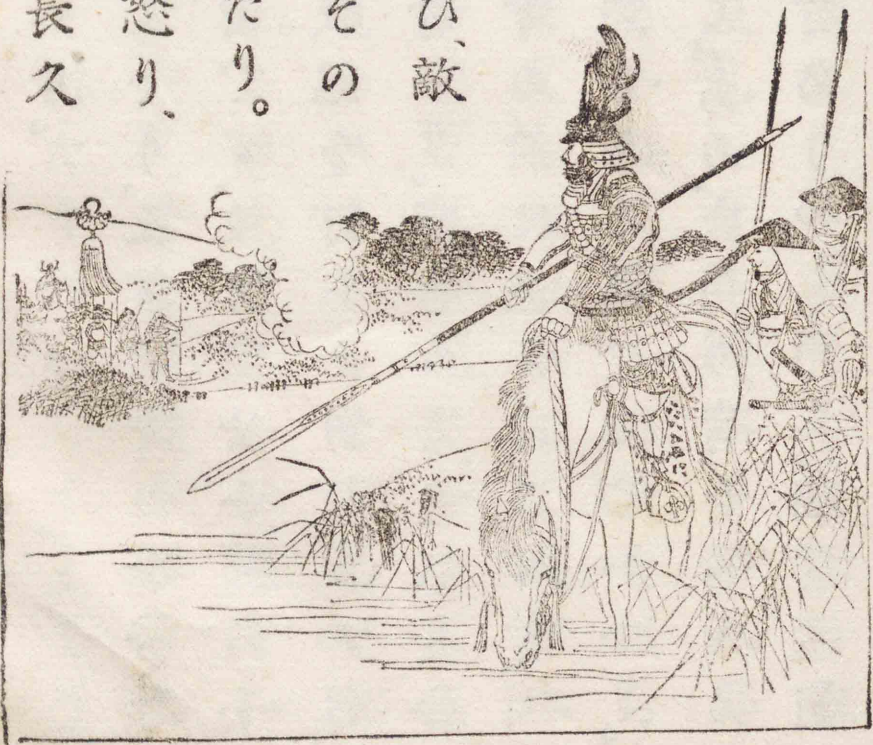 ひ、敵
その
たり。
怒り、
長久